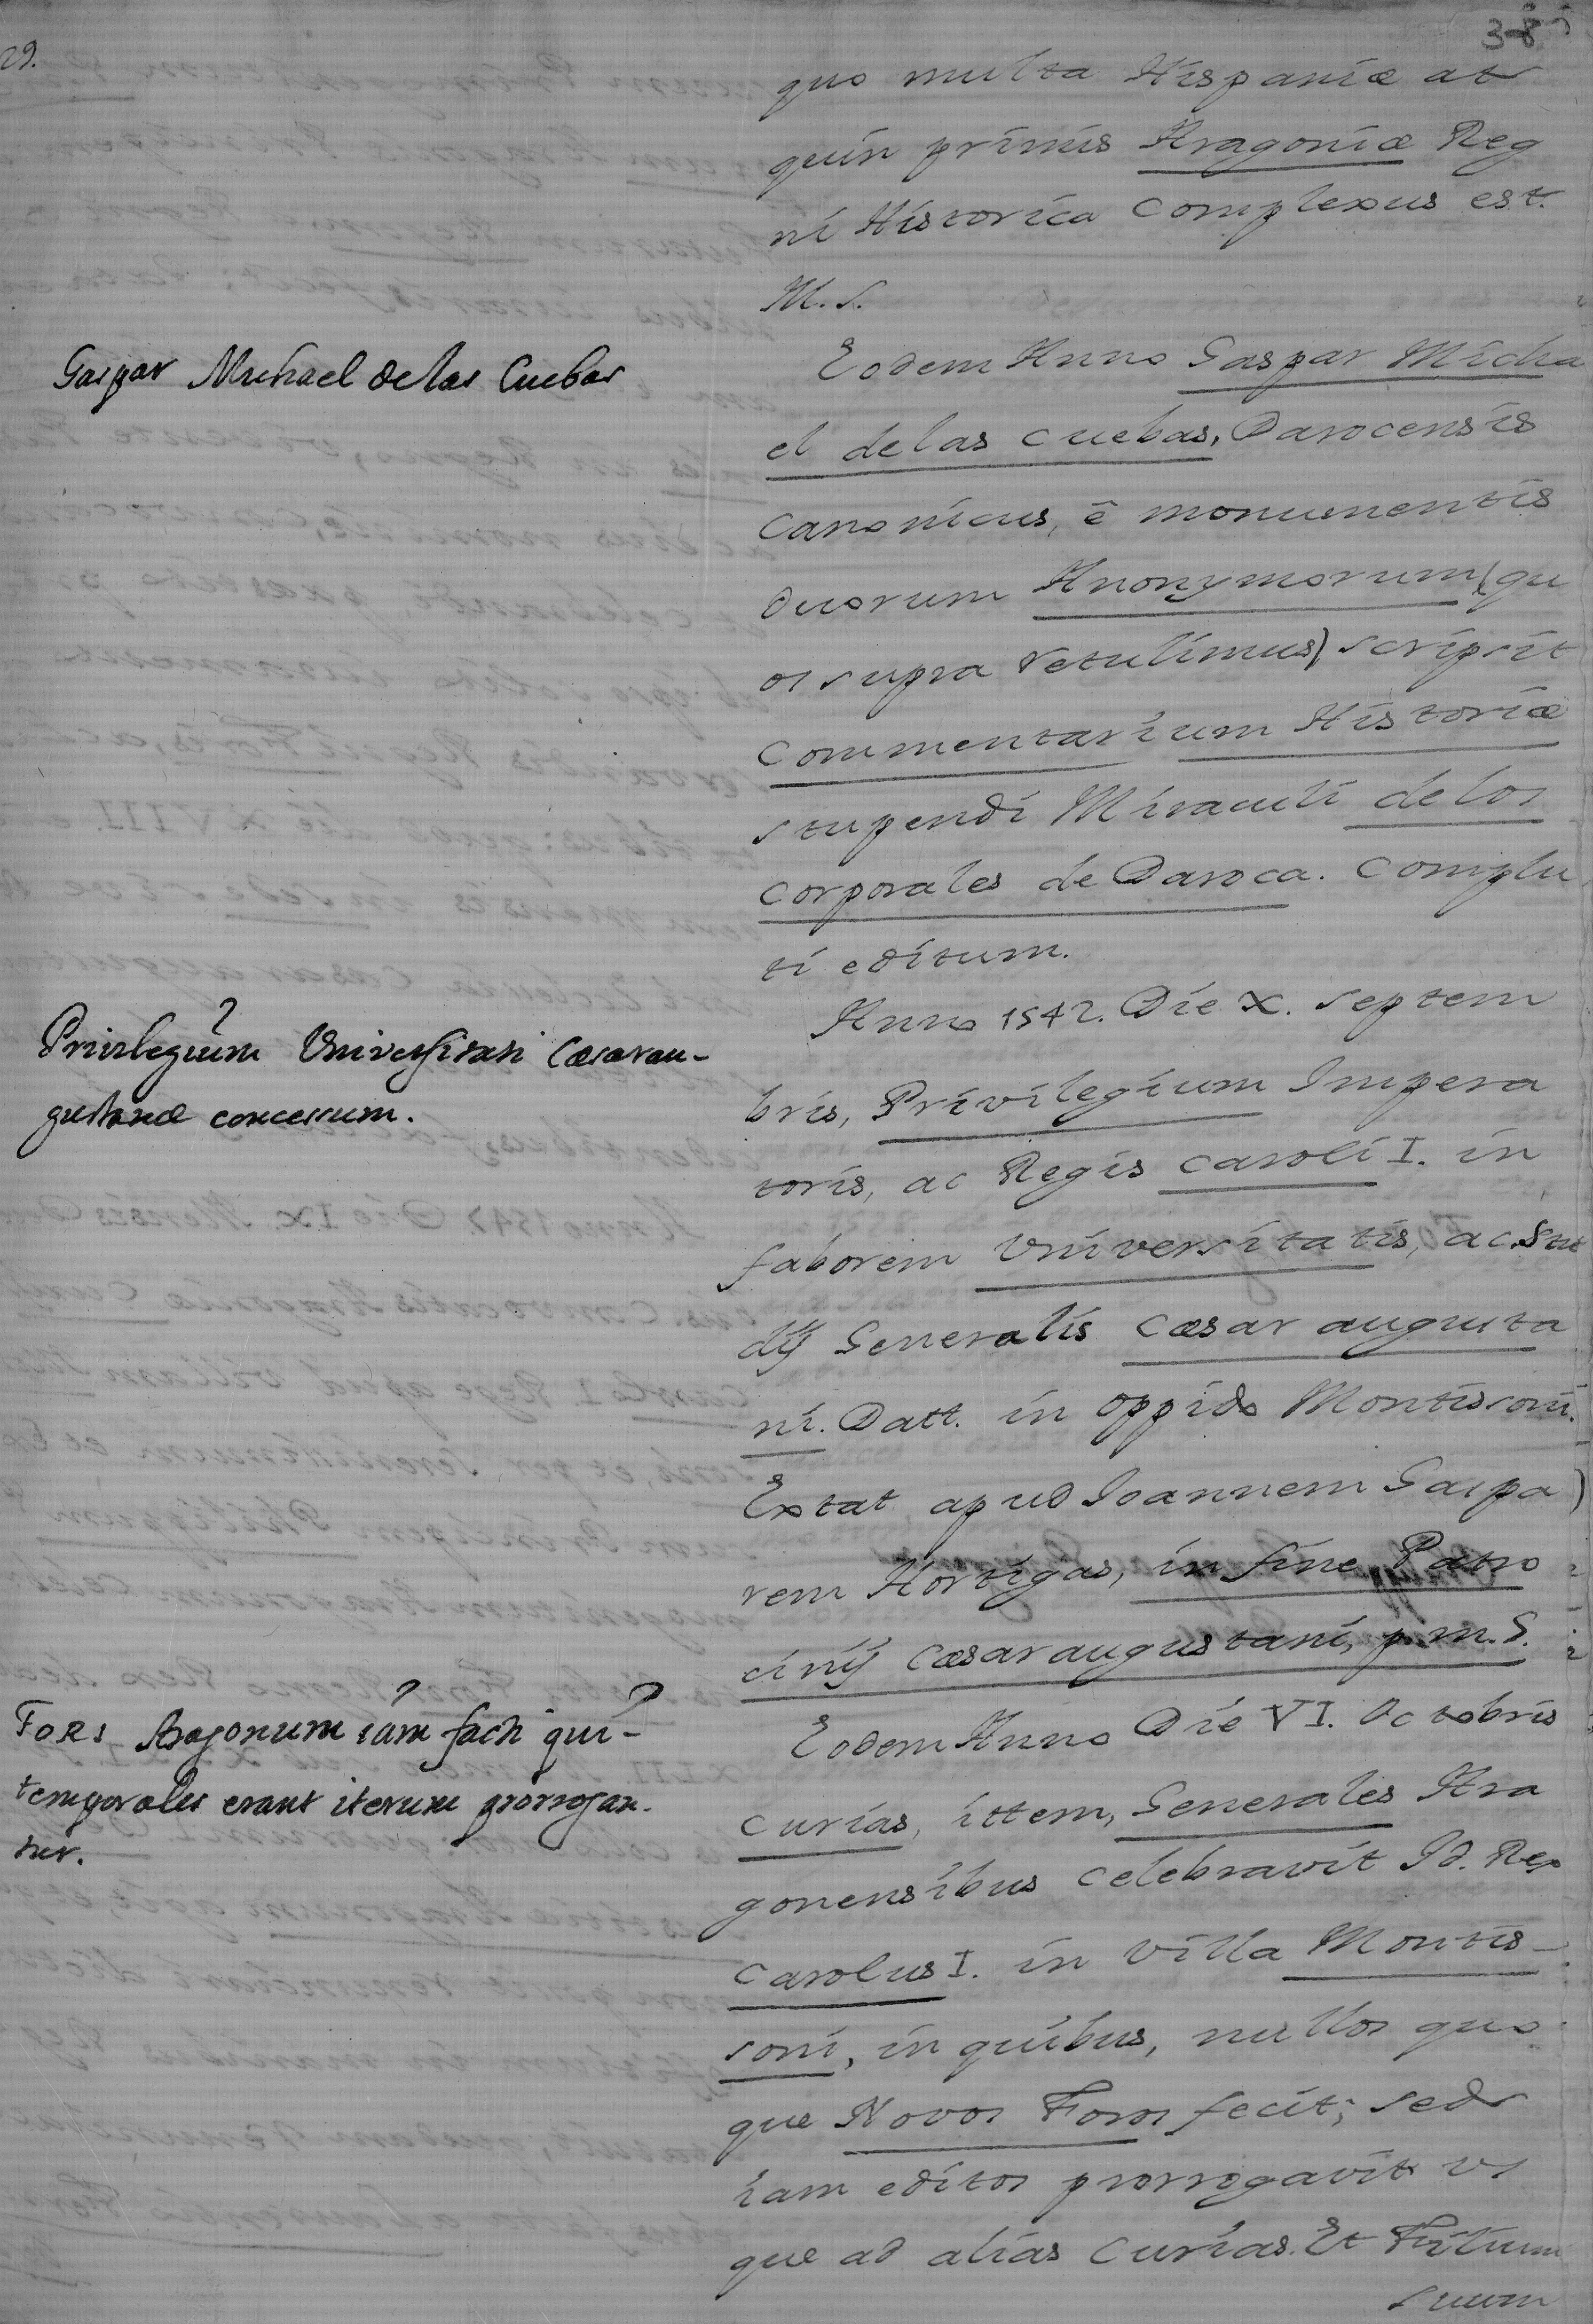 29.
385
quo multa Hispaniæ at
quin primis Aragoniæ Reg
ni Historica complexus est.
M. S.
Gaspar Michael de las Cuebas
Eodem Anno Gaspar Micha
el de las cuebas, Darocensis
Canonicus, ê monumentis
duorum Anonymorum (qu
os supra retulimus) scripsit
Commentarium Historiæ
stupendi Miraculi de los
corporales de Daroca. Complu
ti editum.
Privilegium Universitati Cæsarau-
gustanæ concessum.
Anno 1542. Die X. Septem
bris, Privilegium Impera
toris, ac Regis Caroli I. in
faborem Universitatis, ac Stu
dij Generalis Cæsar augusta
ni. Datt. in oppido Montissoni.
Extat apud Ioannem Gaspa
rem Hortigas, in fine Patro
cinij Cæsaraugustani, p. m. S.
Fori Aragonum iam facti qui
temporales erant iterum prorrogan-
tur.
Eodem Anno Die VI. Octobris
curias, ittem, Generales Ara
gonensibus celebravit Id. Rex
Carolus I. in Villa Montis-
soni, in quibus, nullos quo
que Novos Foros fecit; sed
iam editos prorrogavit us
que ad alias Curias. Et Filium
suum